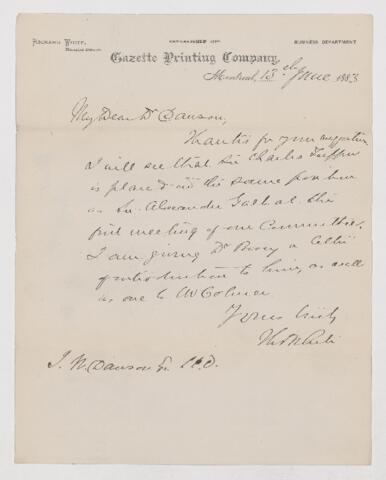 Richard White,
Managing Director.
BUSINESS DEPARTMENT
Gazette Printing Company,
Montreal, 13th June 1883
My Dear Dr Dawson,
Thanks for your suggestion
I will see that Sir Charles Tupper
is placed in the same position
as Sir Alexander Galt at the
first meeting of our Committee.
I am giving Dr a letter
of introduction to him, as well
as one to Mr Colmer
Yours truly
Thos White
J. W. Dawson Esq LL.D.